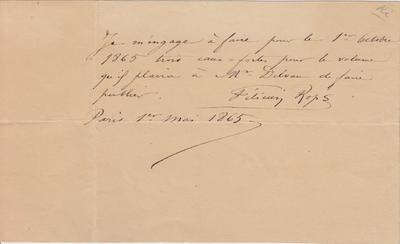 Je m'engage à faire pour le 1er Octobre
1865 trois eaux-fortes pour le volume
qu'il plaira à Mr Delvau de faire
publier. Félicien Rops
Paris 1er mai 1865